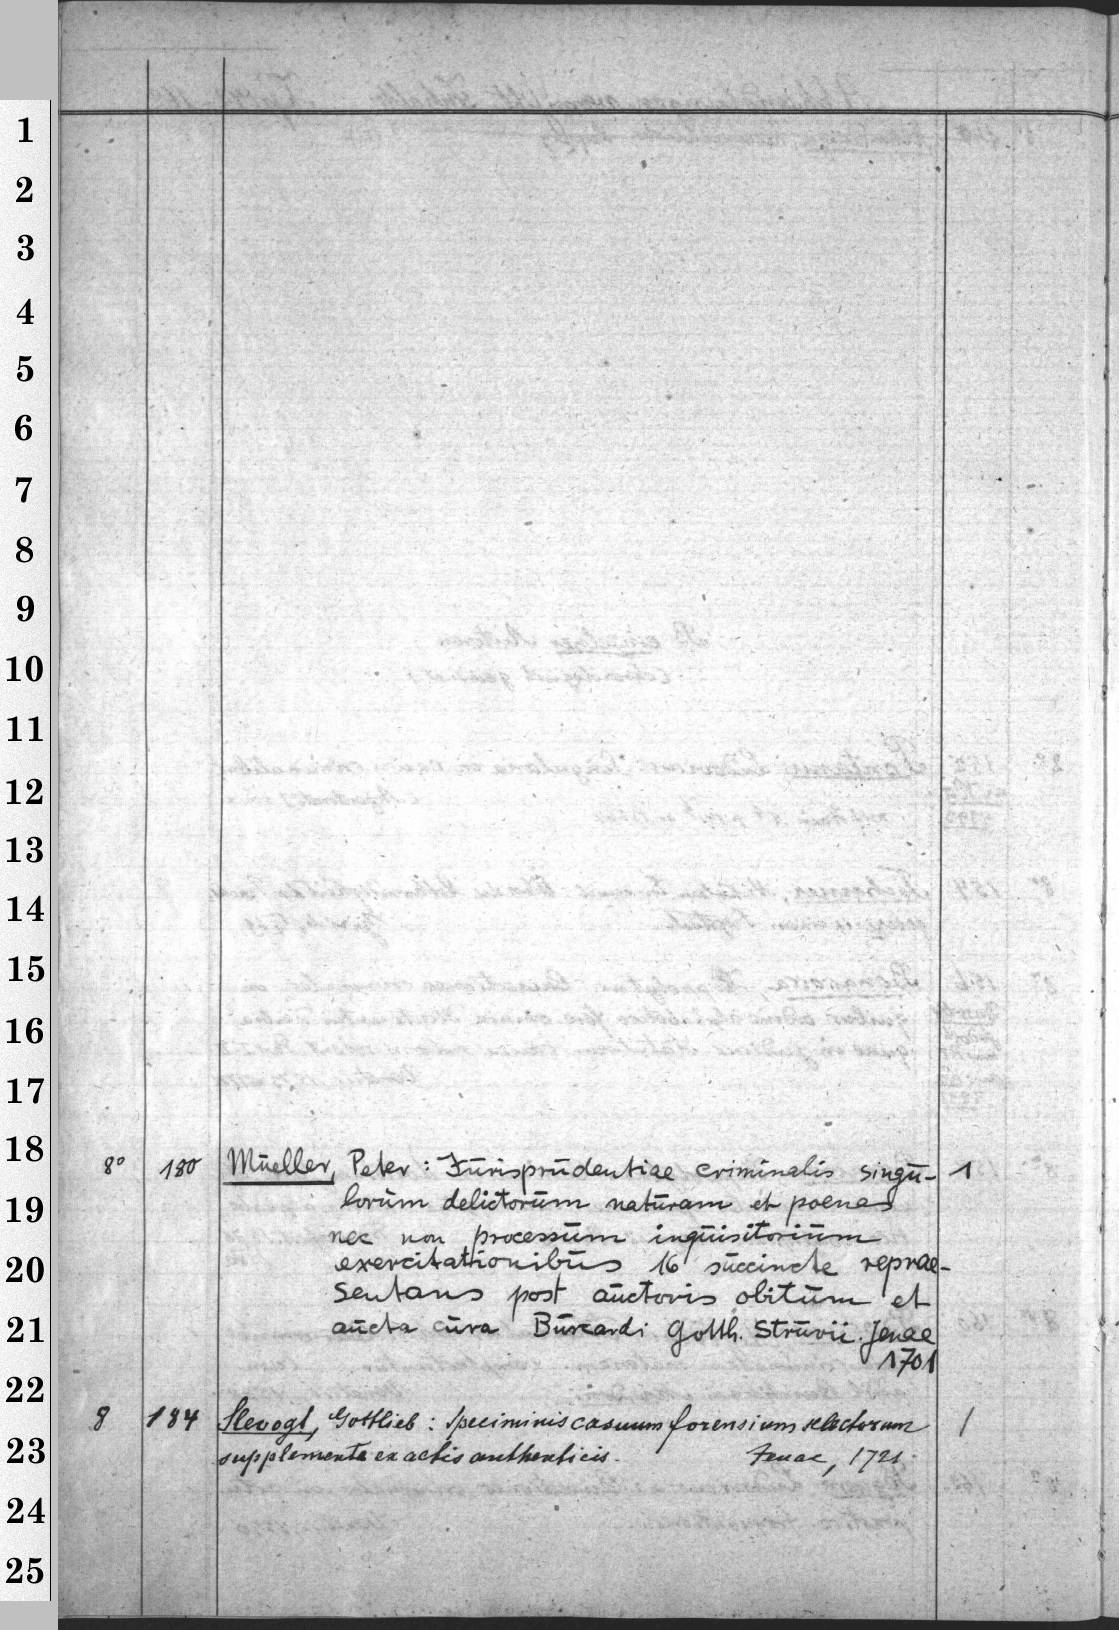 1
2
3
4
5
6
7
8
9
10
11
12
13
14
15
16
17
18
19
20
21
22
23
24
25
8° 180 Mūeller, Peter : Jūrisprūdentiae criminalis singū- 1
lorūm delictorūm natūram et poenas
nec non processūm inqūisitoriūm
exercitationibūs 16 sūccincte reprae-
sentans post aūctoris obitūm et
aūcta cūra Būrcardi Gotth. Strūvii. Jenae
1701
8 184 Slevogt, Gottlieb : Speciminis casuum forensium selectorum 1
supplementa ex actis authenticis. Jenae, 1721.